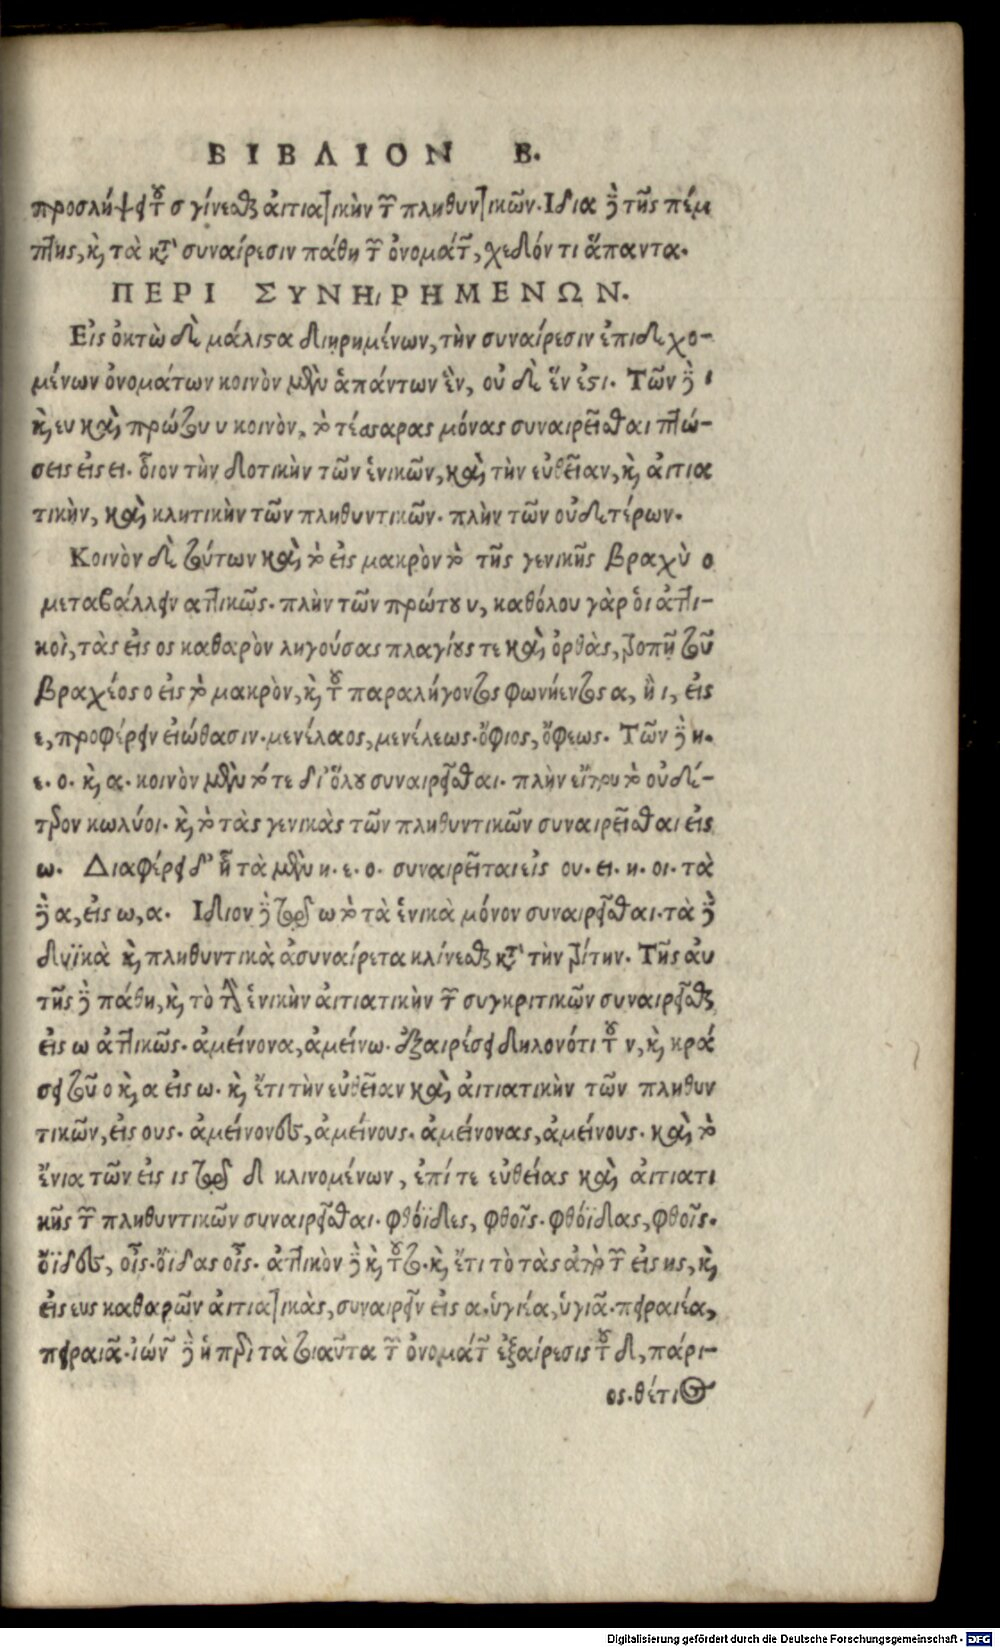 ΒΙΒΛΙΟΝ Β.
προσλήψει τοῦ σ γίνεσθαι αἰτιατικὴν τῶν πληθυντικῶν. Ιδια δὲ τῆς πέμ
πτης, καὶ τὰ κατὰ συναίρεσιν πάθη τῶν ὀνομάτων, σχεδόν τι ἅπαντα.
ΠΕΡΙ ΣΥΝΗΡΗΜΕΝΩΝ.
Εἰς ὀκτὼ δὲ μάλιστα διηρημένων, τὴν συναίρεσιν ἐπιδεχο-
μένων ὀνομάτων κοινὸν μὲν ἁπάντων ἓν, οὐδὲ ἕν ἐστι. Τῶν δὲ ι
καὶ ευ καὶ πρώτου υ κοινὸν, τὸ τέσσαρας μόνας συναιρεῖσθαι πτώ-
σεις εἰς ει. οἷον τὴν δοτικὴν τῶν ἑνικῶν, καὶ τὴν εὐθεῖαν, καὶ αἰτια
τικὴν, καὶ κλητικὴν τῶν πληθυντικῶν. πλὴν τῶν οὐδετέρων.
Κοινὸν δὲ τούτων καὶ τὸ εἰς μακρὸν τὸ τῆς γενικῆς βραχὺ ο
μεταβάλλειν ἀττικῶς. πλὴν τῶν πρώτου υ, καθόλου γὰρ οἱ ἀττι-
κοὶ, τὰς εἰς ος καθαρὸν ληγούσας πλαγίους τε καὶ ὀρθὰς, τροπῇ τοῦ
βραχέος ο εἰς τὸ μακρὸν, καὶ τοῦ παραλήγοντος φωνήεντος α, ἢ ι, εἰς
ε, προφέρειν εἰώθασιν. μενέλαος, μενέλεως. ὄφιος, ὄφεως. Τῶν δὲ η.
ε. ο. καὶ α. κοινὸν μὲν τό τε δι' ὅλου συναιρεῖσθαι. πλὴν εἴπου τὸ οὐδέ-
τερον κωλύοι. καὶ τὸ τὰς γενικὰς τῶν πληθυντικῶν συναιρεῖσθαι εἰς
ω. Διαφέρει δ' ἧ τὰ μὲν η. ε. ο. συναιρεῖται εἰς ου. ει. η. οι. τὰ
δὲ α, εἰς ω, α. Ιδιον δὲ τοῦ ω τὸ τὰ ἑνικὰ μόνον συναιρεῖσθαι. τὰ δὲ
δυϊκὰ καὶ πληθυντικὰ ἀσυναίρετα κλίνεσθαι κατὰ τὴν τρίτην. Τῆς αυ
τῆς δὲ πάθη, καὶ τὸ τὴν ἑνικὴν αἰτιατικὴν τῶν συγκριτικῶν συναιρεῖσθαι
εἰς ω ἀττικῶς. ἀμείνονα, ἀμείνω. ἐξαιρέσει δηλονότι τοῦ ν, καὶ κρά
σει τοῦ ο καὶ α εἰς ω. καὶ ἔτι τὴν εὐθεῖαν καὶ αἰτιατικὴν τῶν πληθυν
τικῶν, εἰς ους. ἀμείνονες, ἀμείνους. ἀμείνονας, ἀμείνους. καὶ τὸ
ἔνια τῶν εἰς ις διὰ τοῦ δ κλινομένων, ἐπί τε εὐθείας καὶ αἰτιατι
κῆς τῶν πληθυντικῶν συναιρεῖσθαι. φθόϊδες, φθοῖς. φθόϊδας, φθοῖς.
ὄϊδες, οἶς. ὄϊδας οἶς. ἀττικὸν δὲ καὶ τοῦτο. καὶ ἔτι τὸ τὰς ἀπὸ τῶν εἰς ης, καὶ
εἰς ευς καθαρῶν αἰτιατικὰς, συναιρεῖν εἰς α. ὑγιέα, ὑγιᾶ. πειραιέα,
πειραιᾶ. ἰώνων δὲ ἡ περὶ τὰ τοιαῦτα τῶν ὀνομάτων ἐξαίρεσις τοῦ δ, πάρι-
ος. θέτιος
Digitalisierung gefördert durch die Deutsche Forschungsgemeinschaft - DFG